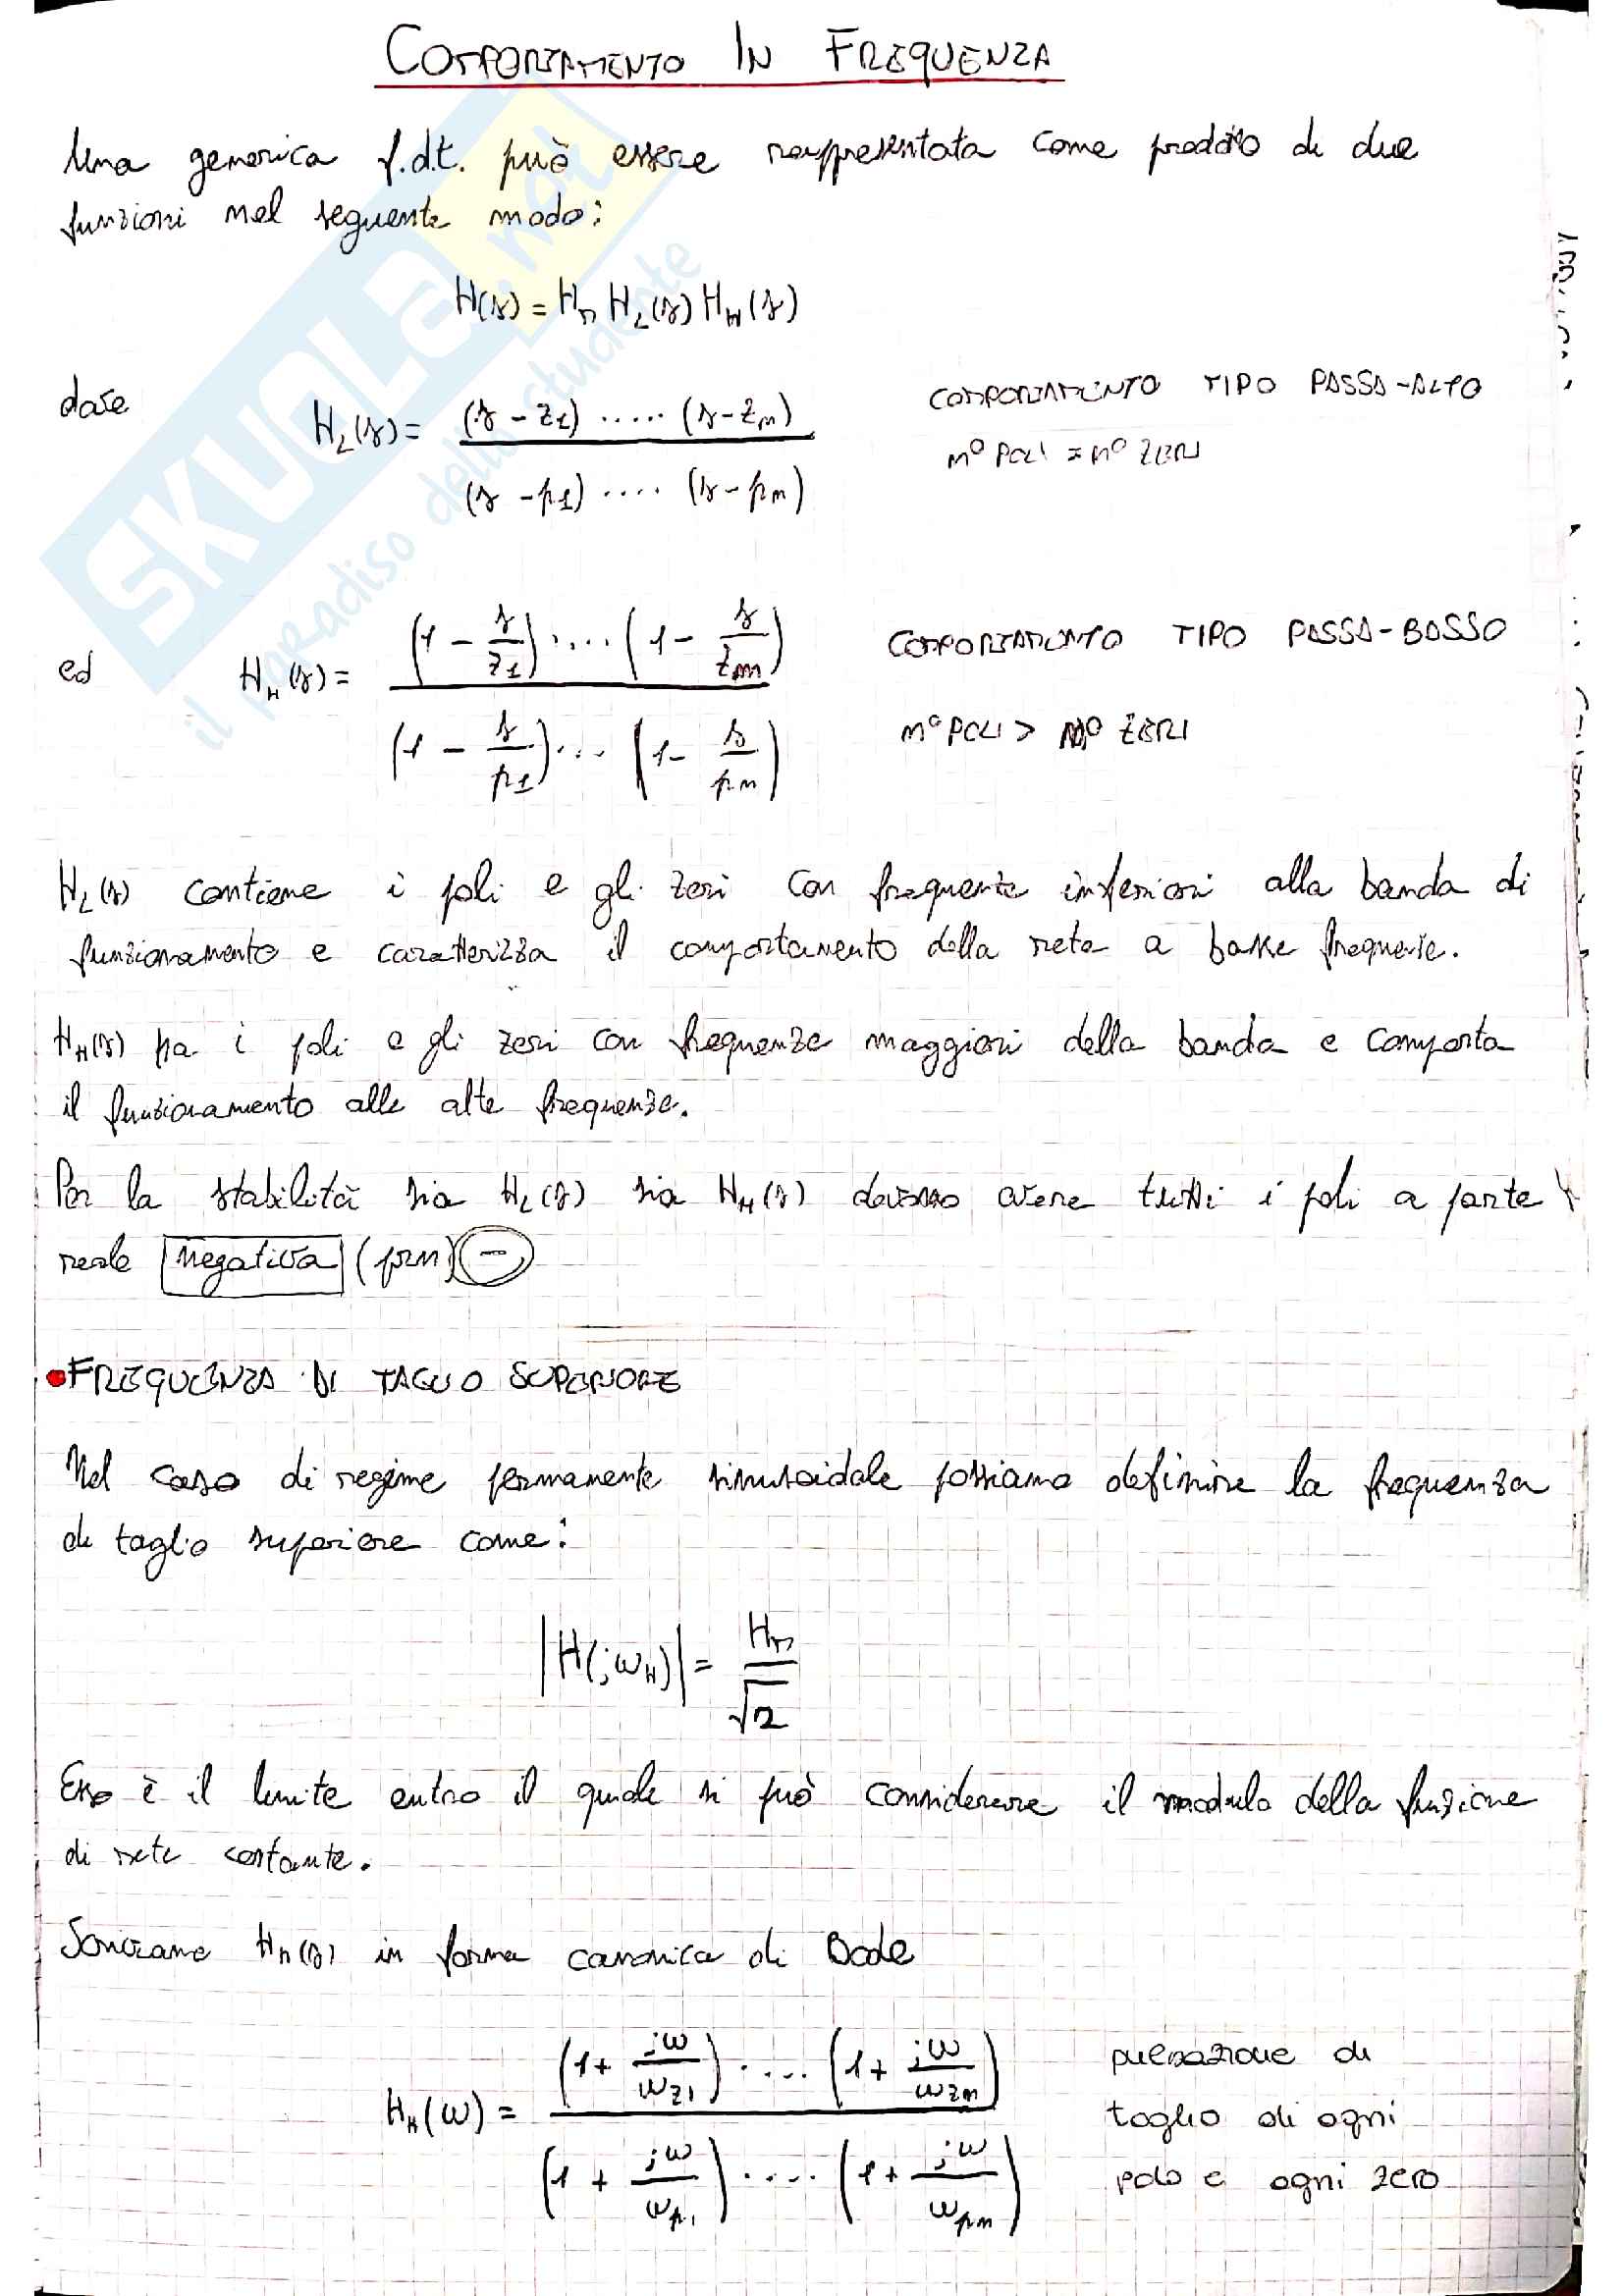 COMPORTAMENTO IN FREQUENZA
Una generica f.d.t. può essere rappresentata come prodotto di due
funzioni nel seguente modo:
H(s) = Hm H_L(s) H_H(s)
dove
H_L(s) = (s - z1) ..... (s - zm) / (s - p1) .... (s - pm)
COMPORTAMENTO TIPO PASSA-ALTO
n° POLI = n° ZERI
ed
H_H(s) = (1 - s/z1) .... (1 - s/zm) / (1 - s/p1) ... (1 - s/pn)
COMPORTAMENTO TIPO PASSA-BASSO
n° POLI > N° ZERI
H_L(s) contiene i poli e gli zeri con frequenze inferiori alla banda di
funzionamento e caratterizza il comportamento della rete a basse frequenze.
H_H(s) ha i poli e gli zeri con frequenze maggiori della banda e comporta
il funzionamento alle alte frequenze.
Per la stabilità sia H_L(s) sia H_H(s) devono avere tutti i poli a parte
reale negativa (prn) -
FREQUENZA DI TAGLIO SUPERIORE
Nel caso di regime permanente sinusoidale possiamo definire la frequenza
di taglio superiore come:
|H(jωH)| = Hm / √2
Esso è il limite entro il quale si può considerare il modulo della funzione
di rete costante.
Scriviamo H_H(s) in forma canonica di Bode
H_H(ω) = (1 + jω/ωz1) ..... (1 + jω/ωzm) / (1 + jω/ωp1) ..... (1 + jω/ωpn)
pulsazione di
taglio di ogni
polo e ogni zero
SKUOLA.net
il paradiso dello studente